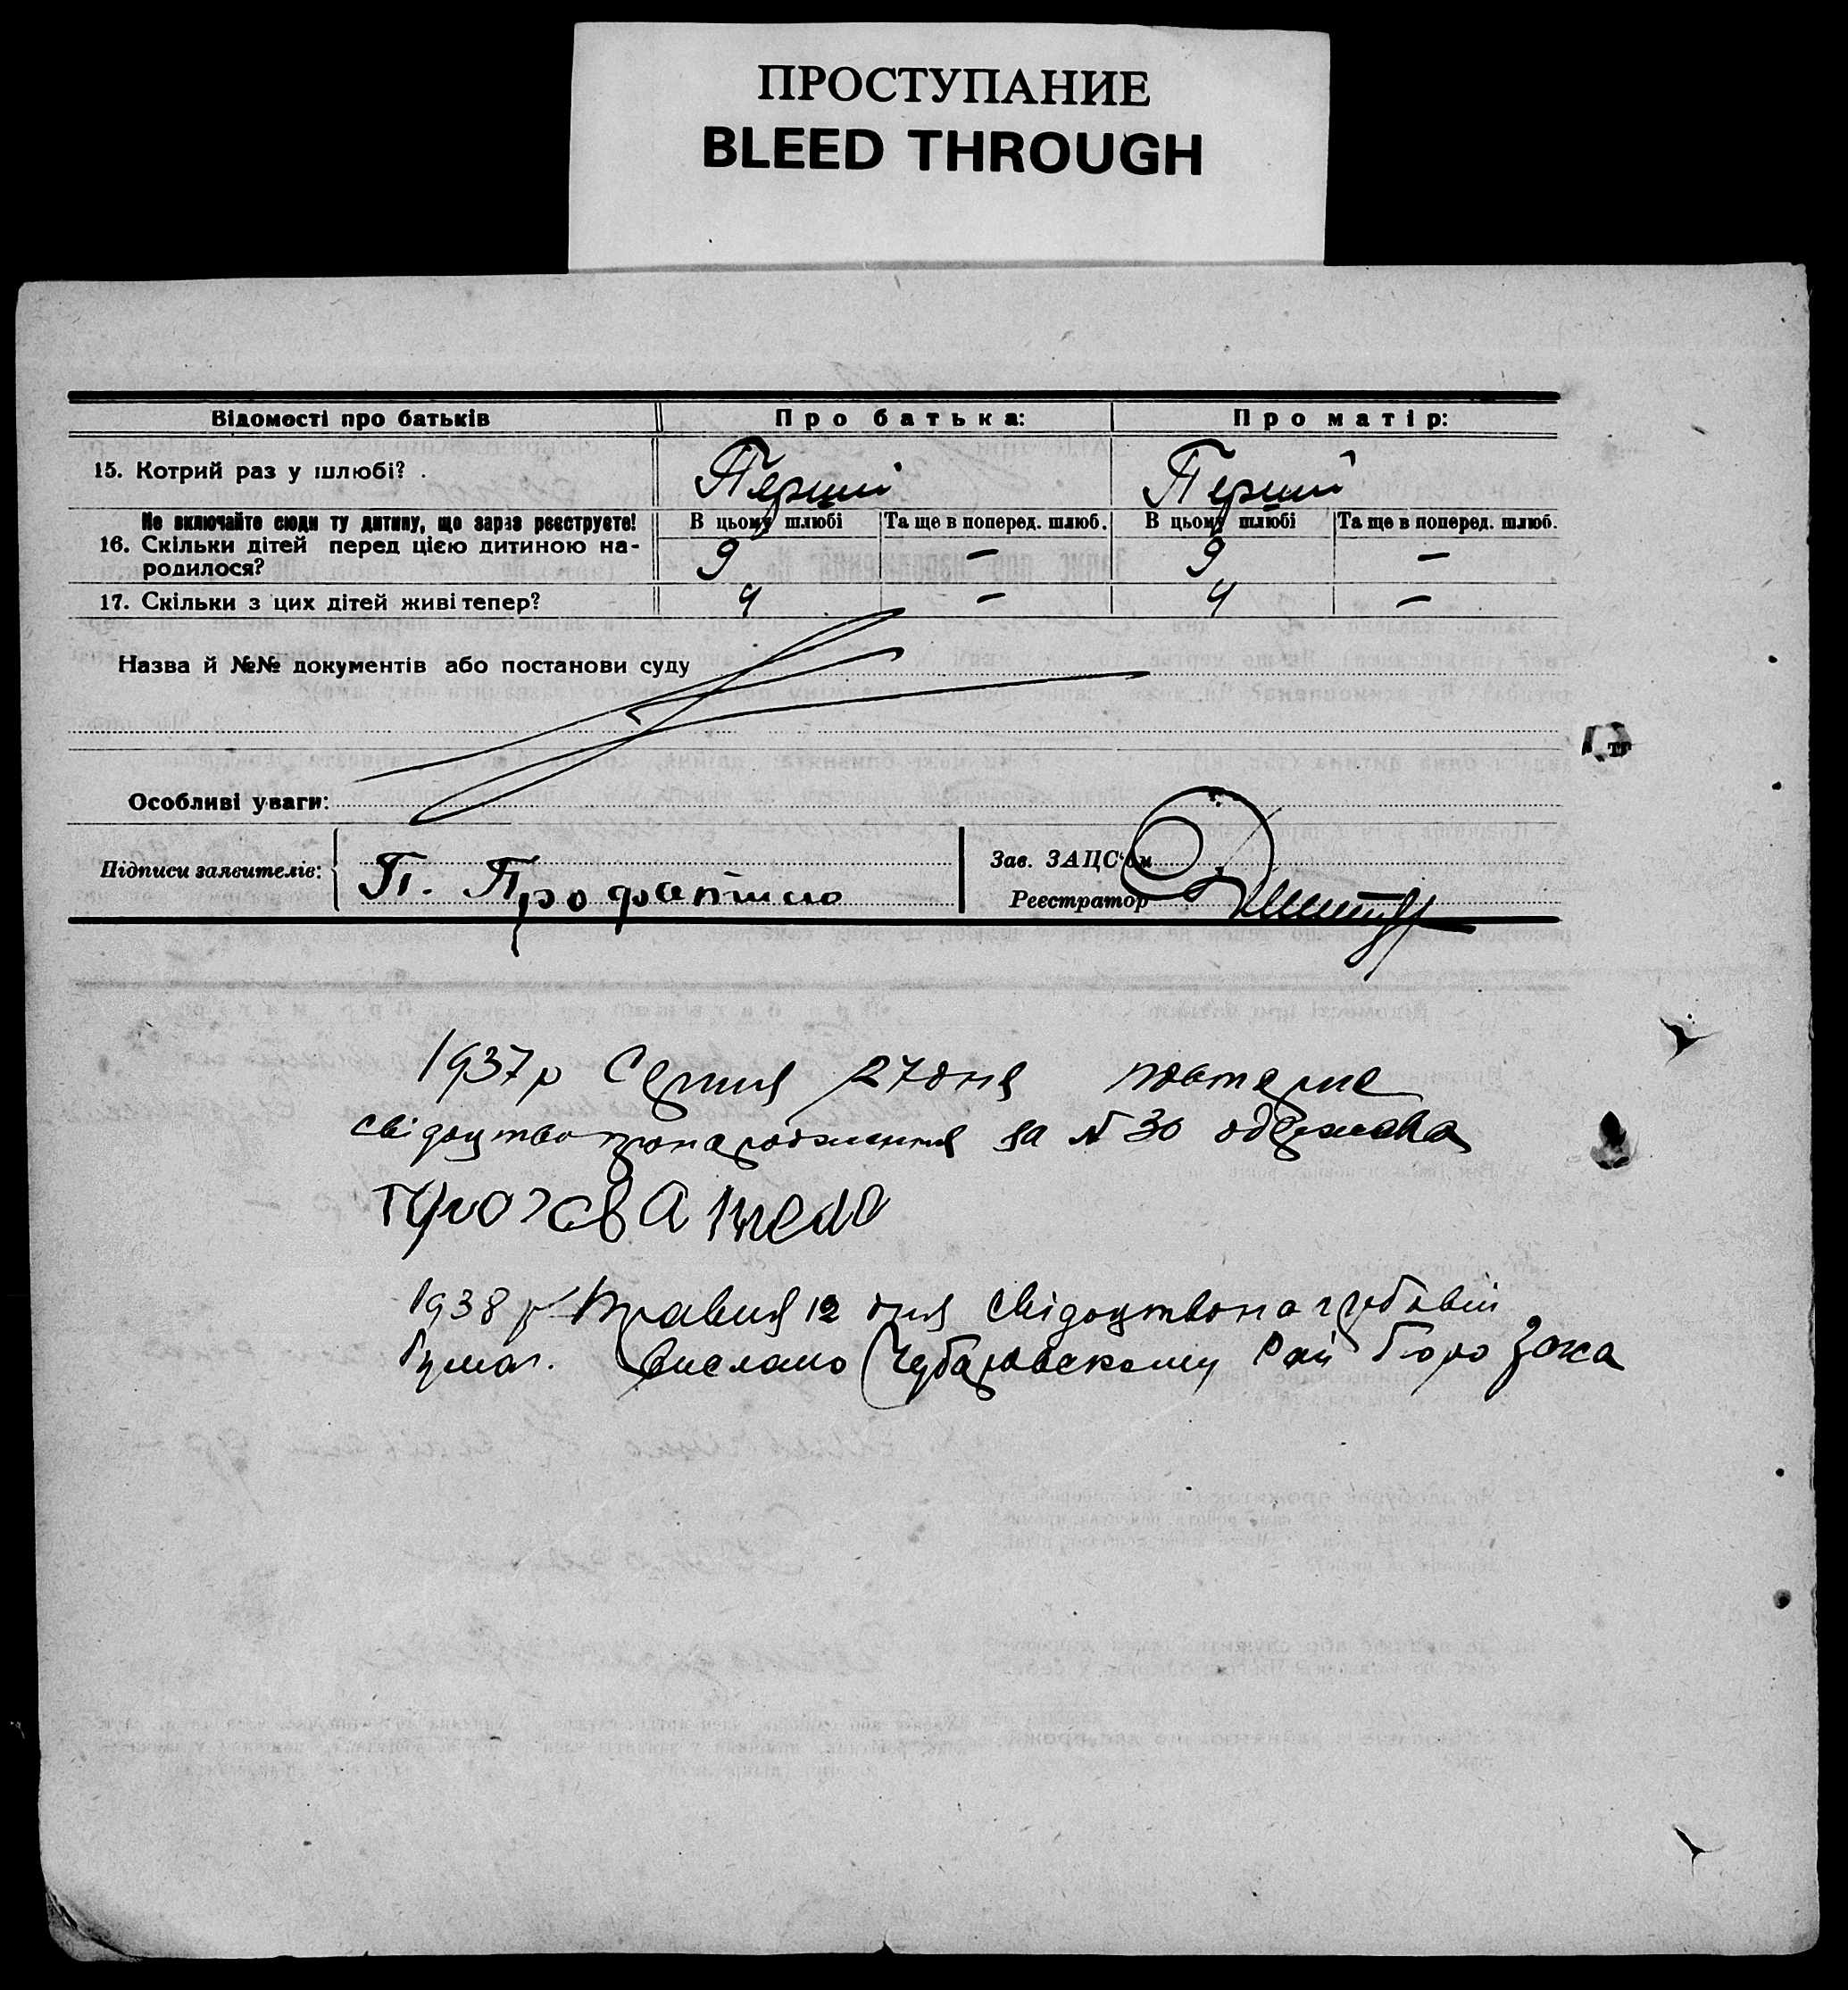 ПРОСТУПАНИЕ
BLEED THROUGH
Відомості про батьків Про батька: Про матір:
15. Котрий раз у шлюбі? Перший Перший
Не включайте сюди ту дитину, що зараз реєструєте! В цьому шлюбі Та ще в поперед. шлюб. В цьому шлюбі Та ще в поперед. шлюб.
16. Скільки дітей перед цією дитиною на-
родилося? 9 — 9 —
17. Скільки з цих дітей живі тепер? 4 — 4 —
Назва й №№ документів або постанови суду
Особливі уваги:
Підписи заявителів: П. Зав. ЗАЦС'ом
Реєстратор
1937 р Серпня 27 дня повторне
свідоцтво про народження за № 30 одержала
1938 р Травня 12 дня свідоцтво на гербовій
бумаг. вислано Чубаровському Рай бюро Загса